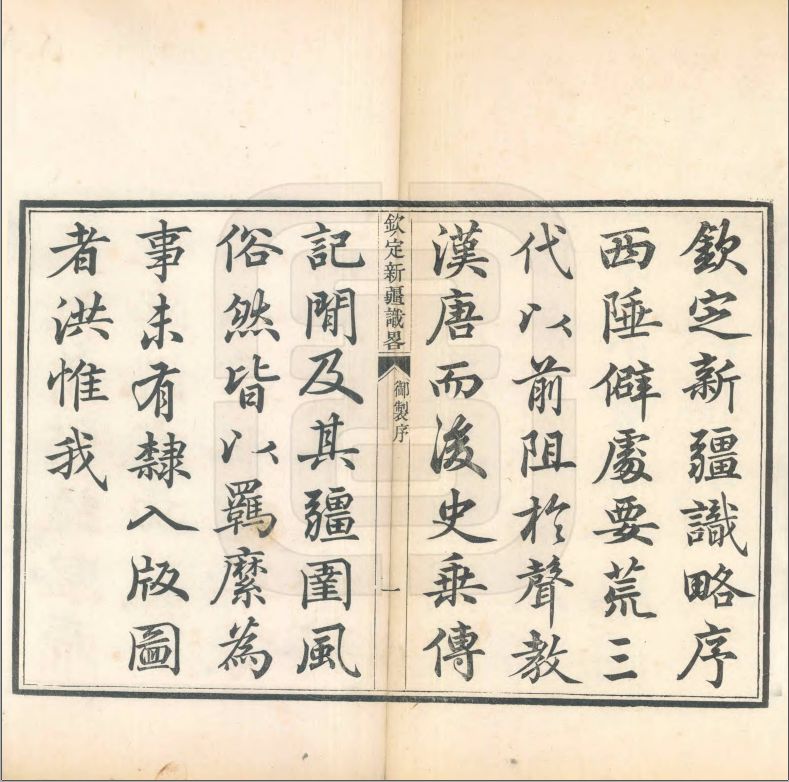 欽定新疆識略序
西陲僻處要荒三
代以前阻於聲教
漢唐而後史乗傳
欽定新疆識畧
御製序
一
記聞及其疆圉風
俗然皆以羈縻為
事未有隸入版圖
者洪惟我